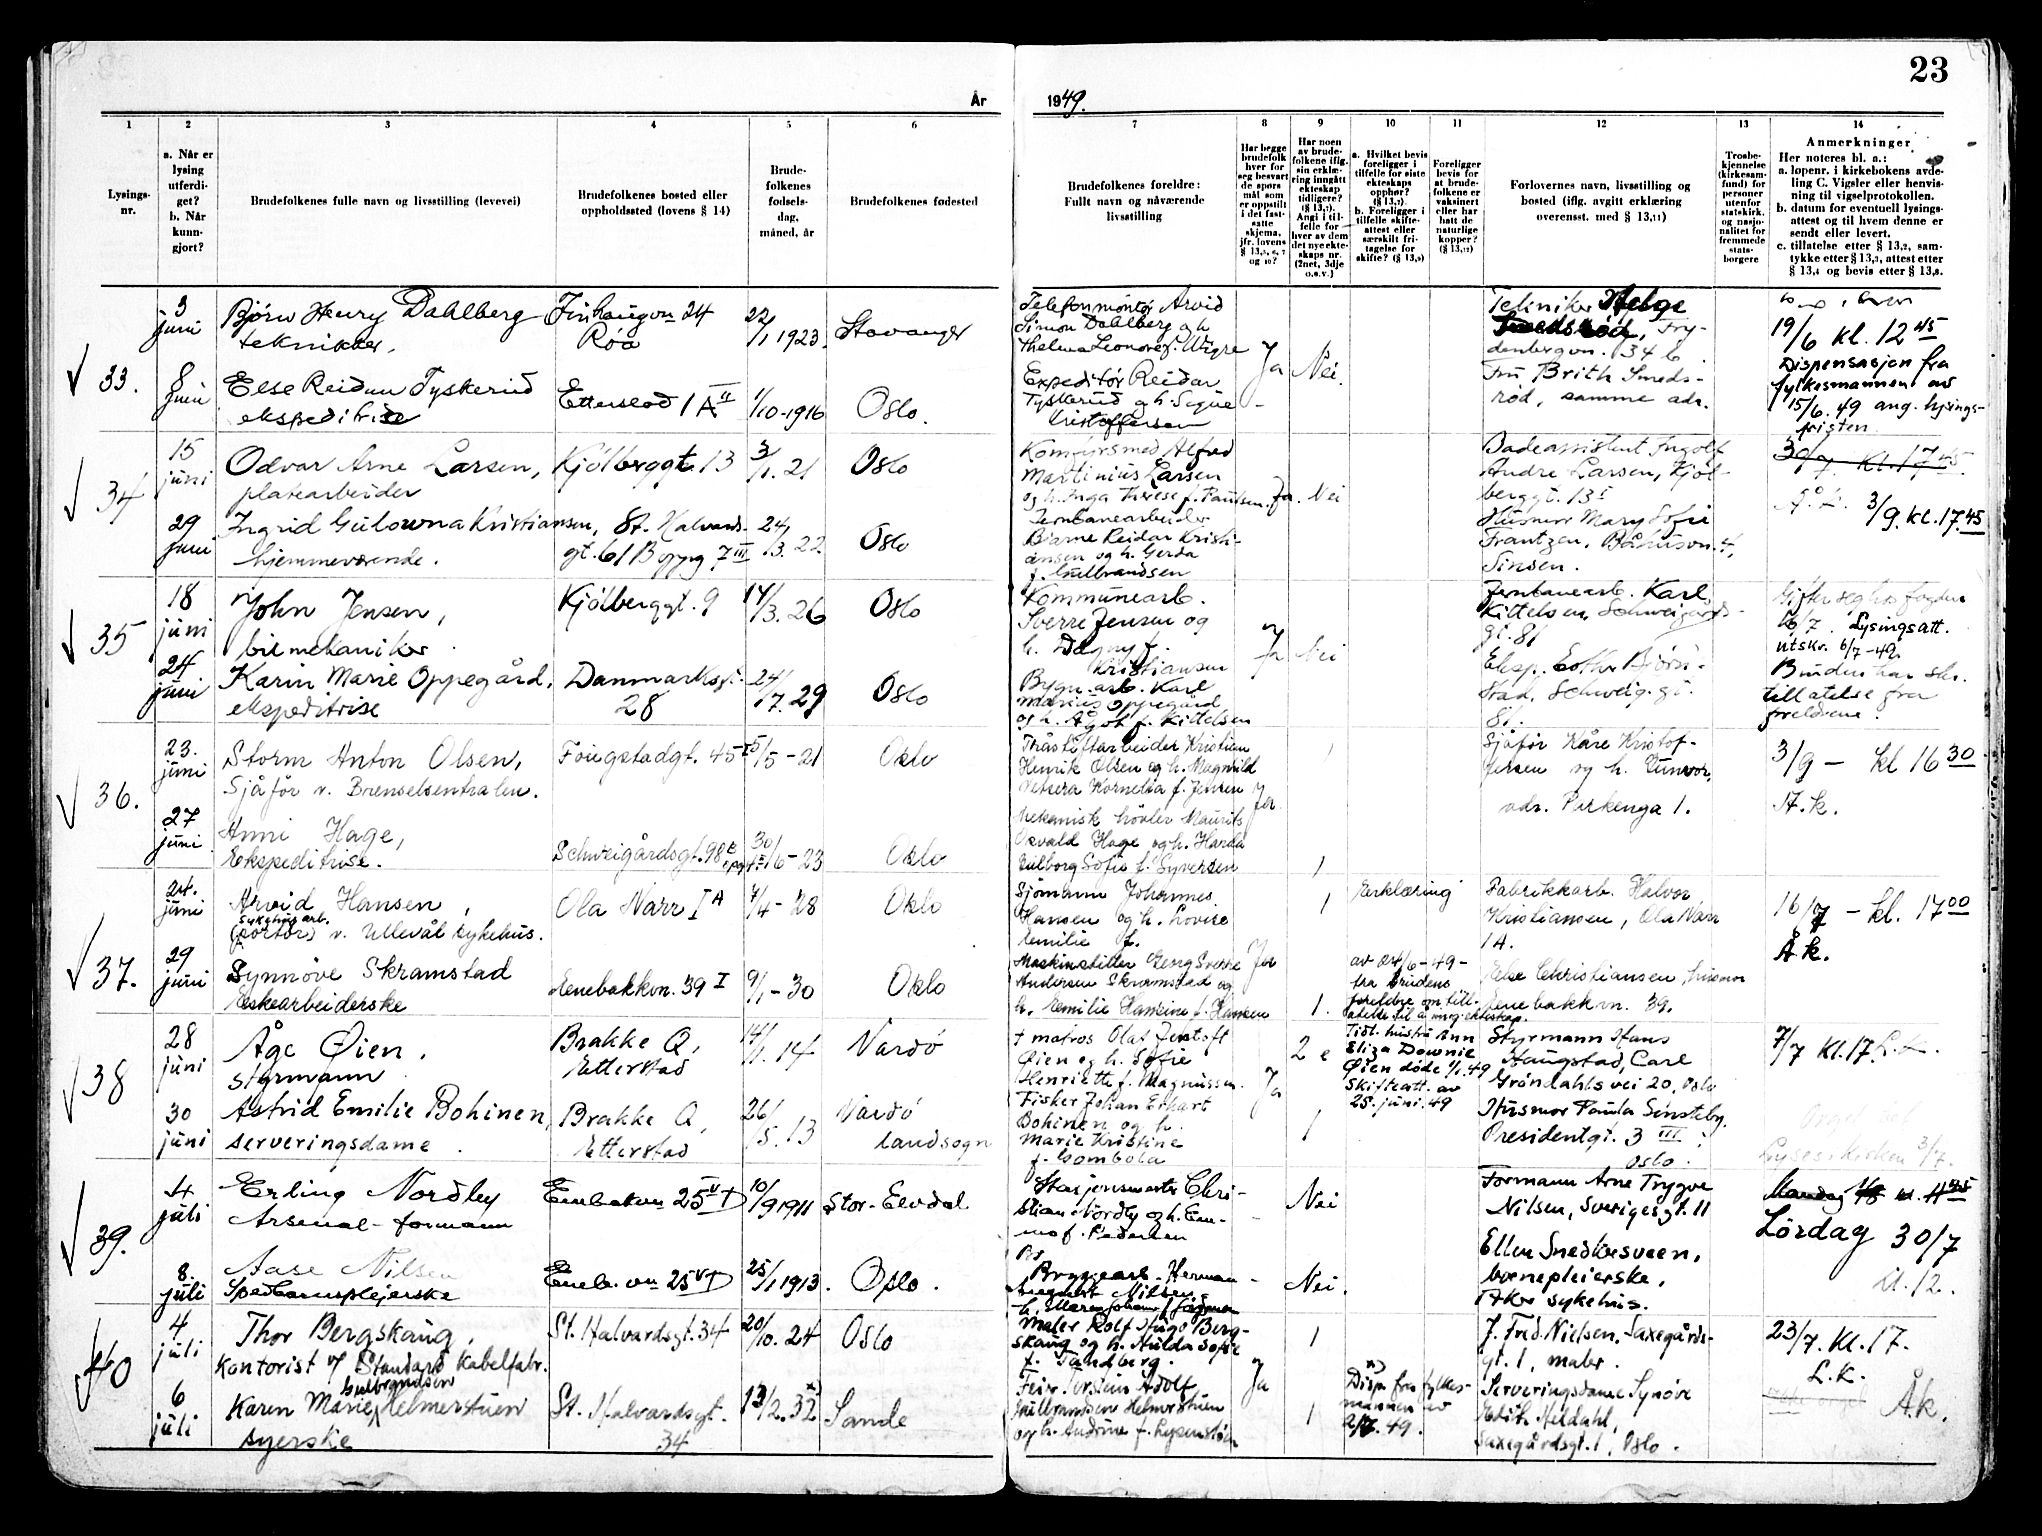 23
År
1949.
1
2
3
4
5
6
7
8
9
10
11
12
13
14
Lysings-
nr.
a. Når er
lysing
utferdi-
get?
b. Når
kunn-
gjort?
Brudefolkenes fulle navn og livsstilling (levevei)
Brudefolkenes bosted eller
oppholdssted (lovens § 14)
Brude-
folkenes
fødsels-
dag,
måned, år
Brudefolkenes fødested
Brudefolkenes foreldre:
Fullt navn og nåværende
livsstilling
Har begge
brudefolk
hver for
seg besvart
de spørs-
mål som
er oppstilt
i det fast-
satte
skjema,
jfr. lovens
Har noen
av brude-
folkene iflg.
sin erklæ-
ring inngått
ekteskap
tidligere?
Angi i til-
felle for
hver av dem
det nye ekte-
skaps nr.
(2net, 3dje
o.s.v.)
a. Hvilket bevis
foreligger i
tilfelle for siste
ekteskaps
opphør?
b. Foreligger i
tilfelle skifte-
attest eller
særskilt fri-
tagelse for
skifte?
Foreligger
bevis for
at brude-
folkene er
vaksinert
eller har
hatt de
naturlige
kopper?
Forlovernes navn, livsstilling og
bosted (iflg. avgitt erklæring
overensst. med § 13,11)
Trosbe-
kjennelse
(kirkesam-
fund) for
personer
utenfor
statskirk.
og nasjo-
nalitet for
fremmede
stats-
borgere
Anmerkninger
Her noteres bl. a.:
a. løpenr. i kirkebokens avde-
ling C. Vigsler eller henvis-
ning til vigselprotokollen.
b. datum for eventuell lysings-
attest og til hvem denne er
sendt eller levert.
c. tillatelse etter § 13,2, sam-
tykke etter § 13,3, attest etter
§ 13,4 og bevis etter § 13,8.
33.
3 juni
Bjørn Henry Dahlberg
tekniker,
24
Røa
22/1 1923.
Stavanger
Telefonmontør Arvid
Simon Dahlberg og h.
Thelma Leonore f. Wigre
Ja
Nei.
Tekniker Helge
Fry-
denbergvn. 34 b
19/6 kl. 12 45
Dispensasjon fra
fylkesmannen av
15/6. 49 ang. lysings-
fristen.
8 juni
Else Reidun Tyskerud
ekspeditrise
Etterstad 1 A II
1/10-1916
Oslo.
Expeditør Reidar
Tyskerud og h. Signe
Kristoffersen
Fru Brith Smeds-
rød, samme adr.
34
15 juni
Odvar Arne Larsen,
platearbeider
Kjølberggt. 13
3/1. 21
Oslo
Komfyrsmed Alfred
Martinius Larsen
og h. Inga Therese f. Paulsen.
Ja.
Nei
Badeassistent Ingolf
Andre Larsen, Kjøl-
berggt. 13 I
30/7 kl. 17 45.
3/9. kl. 17.45
29 juni
Ingrid Gulowna Kristiansen,
hjemmeværende.
St. Halvards-
gt. 61 B oppg 7 III
24/3. 22
Oslo
Jernbanearbeider
Bjarne Reidar Kristi-
ansen og h. Gerda
f. Gulbrandsen
Husmor Mary Sofie
Frantzen, Båhusvn. 4,
Sinsen.
35
18 juni
John Jensen,
bilmekaniker
Kjølberggt. 9
14/3. 26
Oslo
Kommunearb.
Sverre Jensen og
h. Dagny f.
Kristiansen
Ja
Nei
Jernbanearb. Karl
Kittelsen, Schweigaards-
gt. 81
Gifter seg hos fogden
16/7. Lysingsatt.
utskr. 6/7-49.
24 juni
Karin Marie Oppegård,
ekspeditrise
Danmarksgt.
28
24/7. 29
Oslo
Bygn.arb. Karl
Marius Oppegård
og h. Ågot f. Kittelsen
Eksp. Esther Bjørn-
stad, Schweig.gt.
81.
Bruden har skr.
tillatelse fra
foreldrene.
36.
23. juni
Storm Anton Olsen,
Sjåfør v. Brenselsentralen.
Fougstadgt. 45
5/5-21
Oslo
Tråstiftarbeider Kristian
Henrik Olsen og h. Magnhild
Kornelia f. Jensen
Ja.
Sjåfør Kåre Kristof-
fersen og h. Gunvor,
adr. Pirkenga 1.
3/9 - kl 16 30
27 juni
Anni Hage,
Ekspeditrise.
Schweigårdsgt. 98
30/6-23
Oslo
Mekanisk høvler Maurits
Osvald Hage og h. Harda
Gulborg Sofie f. Syversen
1
37.
24. juni
Arvid Hansen,
Sykehusarb.
(portør) v. Ullevål sykehus.
Ola Narr 1 A
4/4-28
Oslo
Sjømann Johannes
Hansen og h. Lovise
Emilie f.
Ja
1
Erklæring
Fabrikkarb. Halvor
Kristiansen, Ola Narr
1A.
16/7 - kl. 17 00
Å.k.
29 juni
Synnøve Skramstad
Eskearbeiderske
Enebakkvn. 39 I
9/1-30
Oslo
Maskinstiller Georg Sverre
Andersen Skramstad og
h. Emilie Hansine f. Hansen
1.
av 24/6-49-
fra brudens
foreldre om till-
atelse til å inngå ekteskap.
Else Christiansen, husmor
Enebakkvn. 39.
38
28 juni
Åge Øien,
styrmann
Brakke Q,
Etterstad
14/1. 14
Vardø
+ matros Olaf Jentoft
Øien og h. Sofie
Henriette f. Magnussen.
Ja
2 e
Tidl. hustru Ann
Eliza Downie
Øien døde 1/1. 49
Skifteatt. av
25. juni. 49
Styrmann Hans
Haugstad, Carl
Grøndahls vei 20, Oslo
7/7 Kl. 17. L.K.
30 juni
Astrid Emilie Bohinen,
serveringsdame
Brakke Q,
Etterstad
26/5. 13
Vardø
landsogn
Fisker Johan Erhart
Bohinen og h.
Marie Kristine
f. Gombola
1
Husmor Paula Sinsteby.
Presidentgt. 3 III
Oslo.
39.
4 juli
Erling Nordby
Arsenal-formann
25 V D
10/9 1911
Stor-Elvdal
Stasjonsmester Chri-
stian Nordby og h. Em-
ma f. Pedersen
Nei
Formann Arne Trygve
Nilsen, Sverigesgt. 11
Lørdag 30/7
kl. 12.
8. juli
Aase Nilsen
Spedbarnspleierske
25 V D
25/1 1913.
Oslo.
Bryggearb. Herman
August Nilsen
Nei.
Ellen Snedkersveen,
barnepleierske,
Aker sykehus.
40
4 juli
Thor Bergskaug,
kontorist v/ Standard Kabelfabr.
St. Halvardsgt. 34
20/10. 24
Oslo
Maler Rolf Hugo Berg-
skaug og h. Hulda Sofie
f. Sandberg.
Ja
1
J. Fred. Nielsen, Saxegårds-
gt. 1, maler.
23/7. kl. 17.
L.K.
Å.k.
6 juli
Gulbrandsen
Karen Marie Helmerstuen
syerske
St. Halvardsgt.
34
13/2. 32 x)
Sande
Adolf
Gulbrandsen Helmerstuen
og h. Andrine f.
1
x)
Disp. fra fylkes-
mannen av
2/7. 49.
Serveringsdame Synøve
Edith Meldahl,
Saxegårdsgt. 1, Oslo.